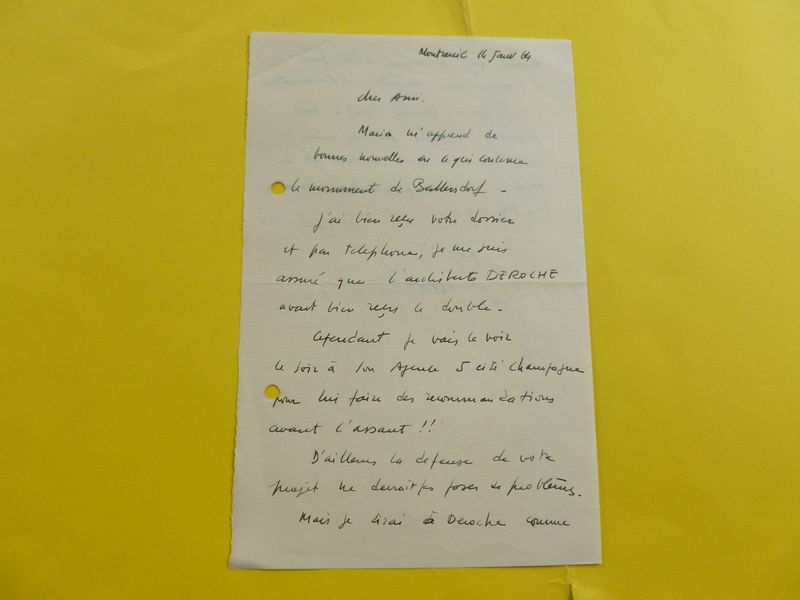 Montreuil 14 Janv 64
cher Ami.
Marin m'apprend de
bonnes nouvelles en ce qui concerne
le monument de Ballersdorf -
J'ai bien reçu votre dossier
et par telephone, je me suis
assuré que l'architecte DEROCHE
avait bien reçu le double.
Cependant je vais le voir
ce soir à son Agence 5 cité Champagne
pour lui faire des recommandations
avant l'assaut !!
D'ailleurs la defense de votre
projet ne devrait pas poser de problèmes.
Mais je dirai à Deroche comme